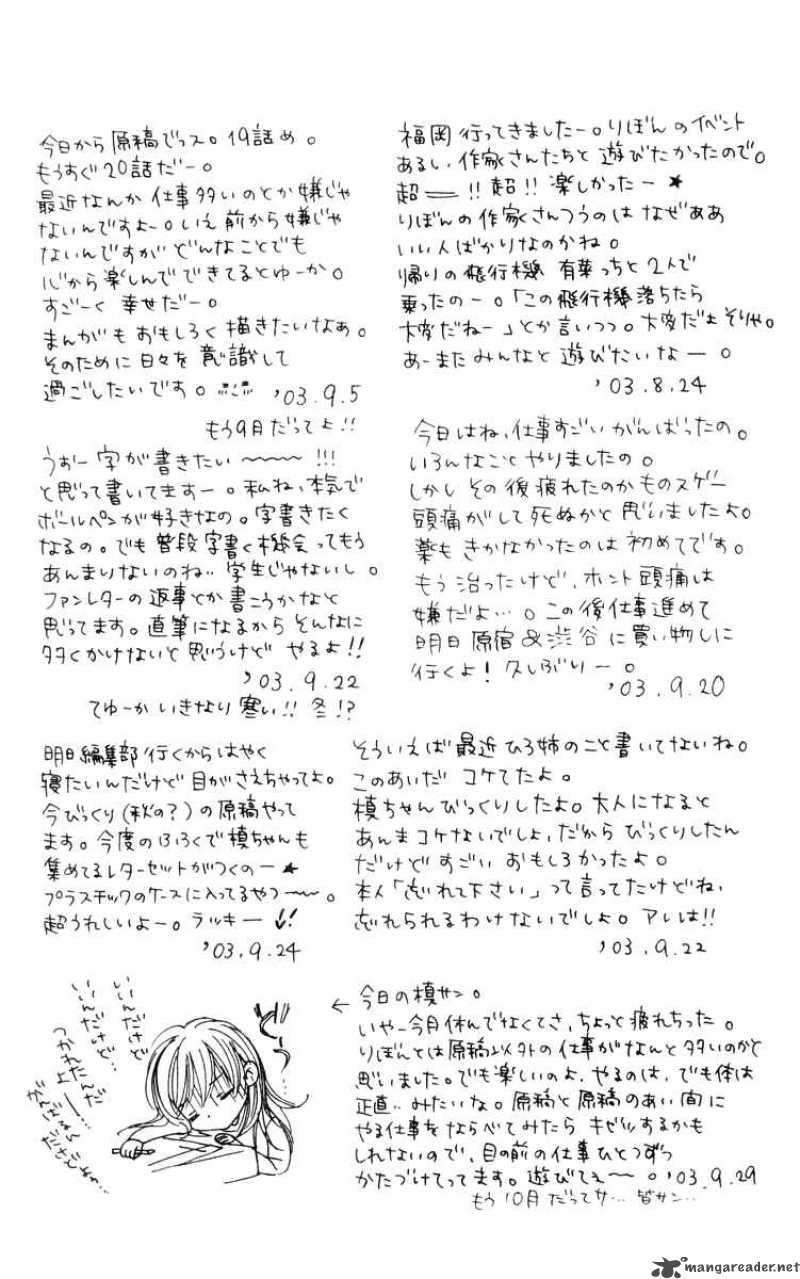 福岡行ってきましたー。りぼんのイベント
あるし、作家さんたちと遊びたかったので。
超――!!超!!楽しかったー★
りぼんの作家さんつうのはなぜああ
いい人ばかりなのかね。
帰りの飛行機 有菜っちと2人で
乗ったのー。「この飛行機落ちたら
大変だねー」とか言いつつ。大変だよそりゃ。
あーまたみんなと遊びたいなー。
'03.8.24
今日から原稿でっス。19話め。
もうすぐ20話だー。
最近なんか仕事多いのとか嫌じゃ
ないんですよー。いえ前から嫌じゃ
ないんですがどんなことでも
心から楽しんでできてるとゆーか。
すごーく幸せだー。
まんがもおもしろく描きたいなあ。
そのために日々を意識して
過ごしたいです。
'03.9.5
もう9月だってよ!!
今日はね、仕事すごいがんばったの。
いろんなことやりましたの。
しかしその後疲れたのかものスゲー
頭痛がして死ぬかと思いましたよ。
薬もきかなかったのは初めてです。
もう治ったけど、ホント頭痛は
嫌だよ…。この後仕事進めて
明日原宿&渋谷に買い物しに
行くよ!久しぶりー。
'03.9.20
うおー字が書きたい〜〜〜〜!!!
と思って書いてますー。私ね、本気で
ボールペンが好きなの。字書きたく
なるの。でも普段字書く機会ってもう
あんまりないのね‥学生じゃないし。
ファンレターの返事とか書こうかなと
思ってます。直筆になるからそんなに
多くかけないと思うけどやるよ!!
'03.9.22
てゆーかいきなり寒い!!冬!?
そういえば最近ひろ姉のこと書いてないね。
このあいだコケてたよ。
槙ちゃんびっくりしたよ。大人になると
あんまコケないでしょ、だからびっくりしたん
だけどすごいおもしろかったよ。
本人「忘れて下さい」って言ってたけどね、
忘れられるわけないでしょ。アレは!!
'03.9.22
明日編集部行くからはやく
寝たいんだけど目がさえちゃってよ。
今びっくり(秋の?)の原稿やって
ます。今度のふろくで槙ちゃんも
集めてるレターセットがつくのー★
プラスチックのケースに入ってるやつ〜〜。
超うれしいよー。ラッキー!!
'03.9.24
←今日の槙サン。
いやー今月休んでなくてさ、ちょっと疲れちった。
りぼんとは原稿以外の仕事がなんと多いのかと
思いました。でも楽しいのよ、やるのは、でも体は
正直‥みたいな。原稿と原稿のあい間に
やる仕事をならべてみたらキゼツするかも
しれないので、目の前の仕事ひとつずつ
かたづけてってます。遊びてぇ〜〜。'03.9.29
もう10月だってサ…皆サン‥
いいんだけど
いいんだけど‥
つかれたんだ
よー
mangareader.net